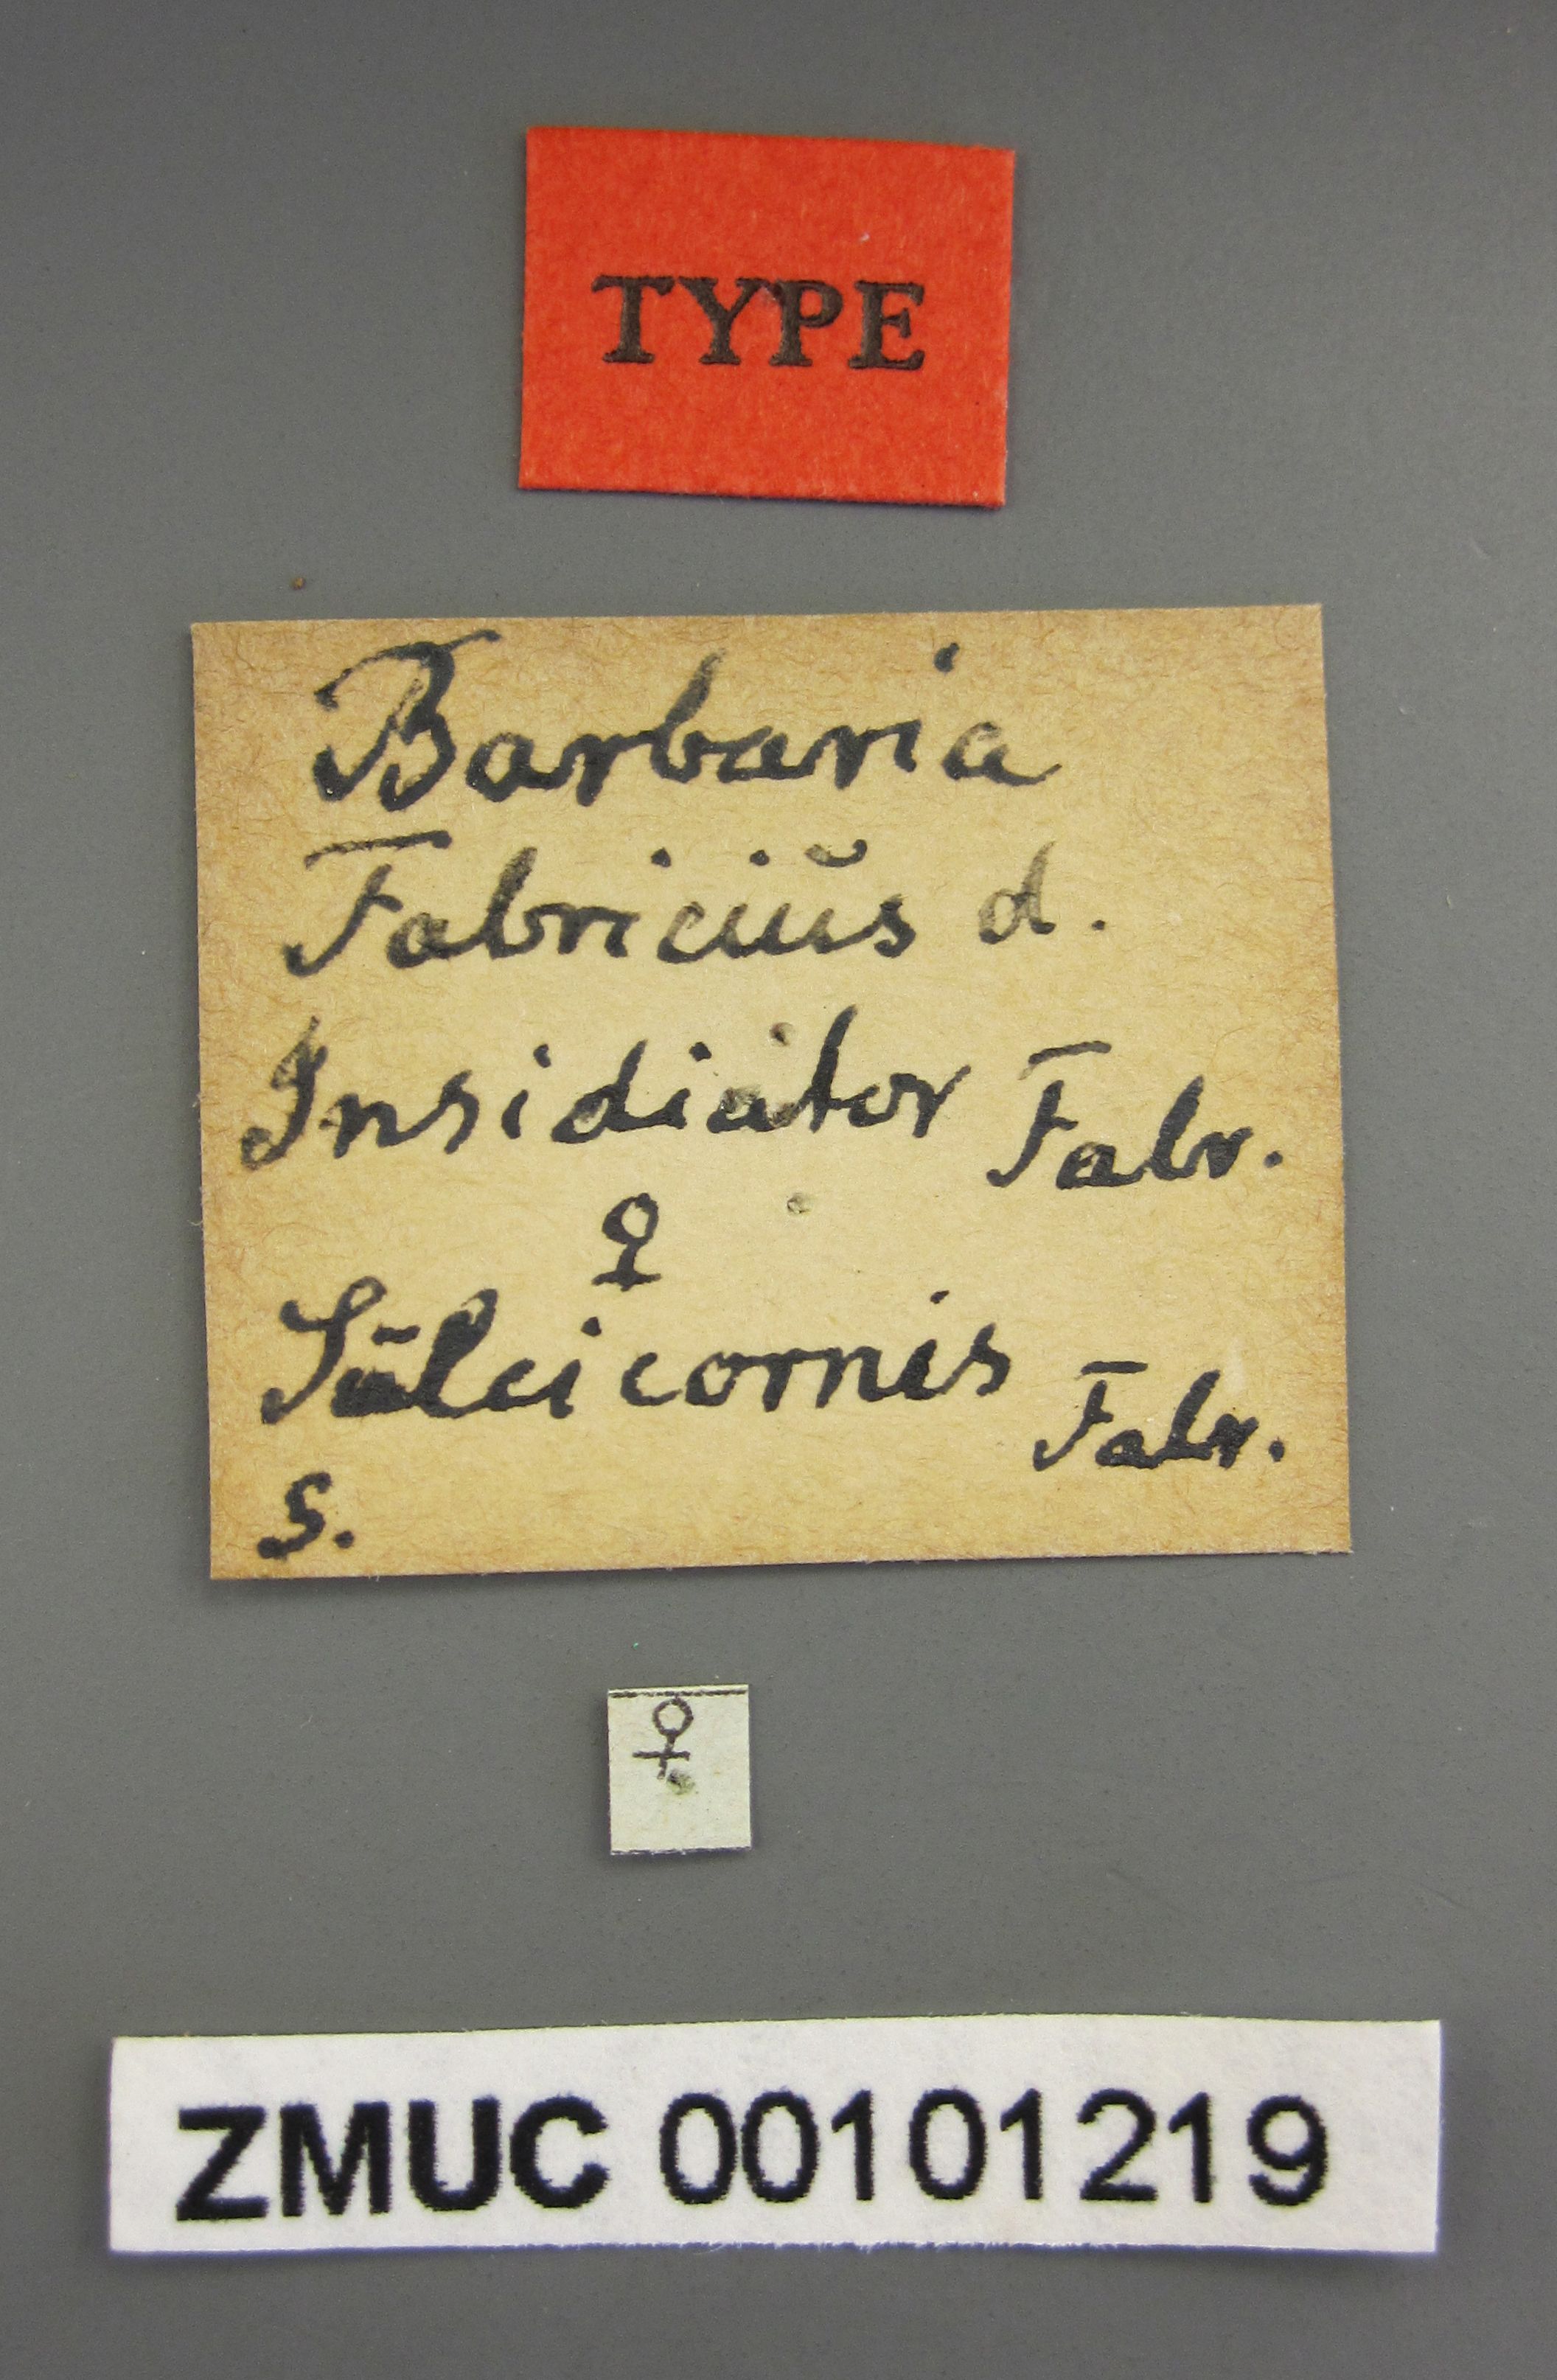 TYPE
Barbaria
Fabriciŭs d.
Insidiator Fabr.
♀
Sūlcicornis Fabr.
s.
♀
ZMUC 00101219